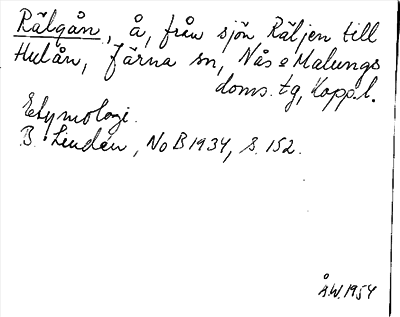 Rälgån, å, från sjön Räljen till
Hulån, Järna sn, Nås o Malungs
doms. tg, Kopp. l.
Etymologi.
B. Lindén, NoB 1934, s. 152.
Å.W. 1954